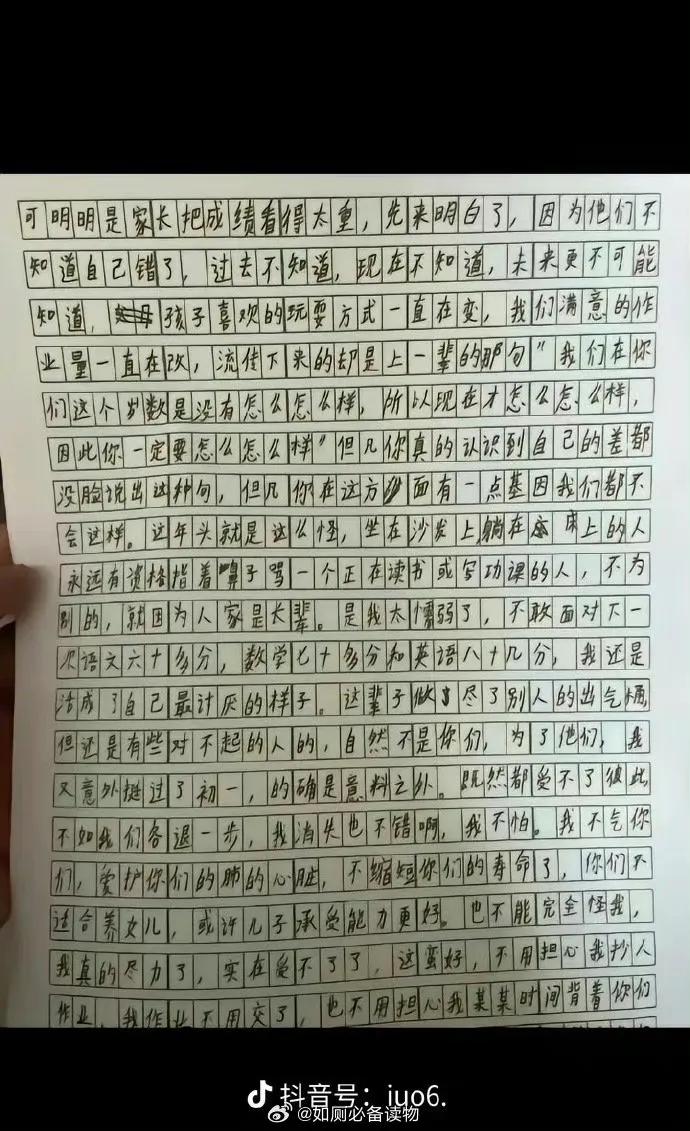 可明明是家长把成绩看得太重，先来明白了，因为他们不
知道自己错了，过去不知道，现在不知道，未来更不可能
知道，孩子喜欢的玩耍方式一直在变，我们满意的作
业量一直在改，流传下来的却是上一辈的那句"我们在你
们这个岁数是没有怎么怎么样，所以现在才怎么怎么样，
因此你一定要怎么怎么样"但凡你真的认识到自己的差都
没脸说出这种句，但凡你在这方面有一点基因我们都不
会这样。这年头就是这么怪，坐在沙发上躺在床上的人
永远有资格指着鼻子骂一个正在读书或写功课的人，不为
别的，就因为人家是长辈。是我太懦弱了，不敢面对下一
次语文六十多分，数学七十多分和英语八十几分，我还是
活成了自己最讨厌的样子。这辈子做尽了别人的出气桶，
但还是有些对不起的人的，自然不是你们，为了他们，我
又意外挺过了初一，的确是意料之外。既然都受不了彼此，
不如我们各退一步，我消失也不错啊，我不怕。我不气你
们，爱护你们的肺的心脏，不缩短你们的寿命了，你们不
适合养女儿，或许儿子承受能力更好。也不能完全怪我，
我真的尽力了，实在受不了了，这蛮好，不用担心我抄人
作业，我作业不用交了，也不用担心我某某时间背着你们
抖音号：iuo6.
@如厕必备读物